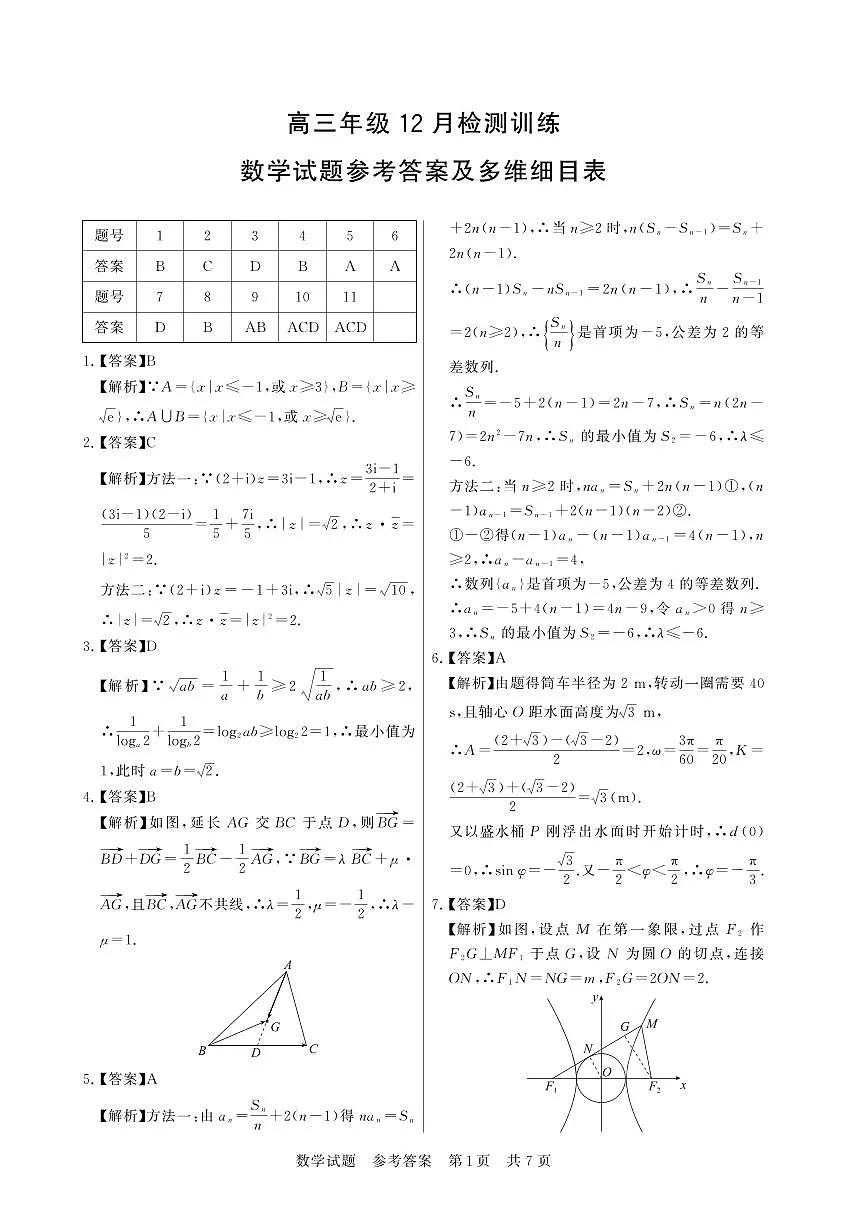 高三年级 12 月检测训练
数学试题参考答案及多维细目表
题号 1 2 3 4 5 6
答案 B C D B A A
题号 7 8 9 10 11
答案 D B AB ACD ACD
1.【答案】B
【解析】∵A={x|x≤-1,或 x≥3},B={x|x≥
√e},∴A∪B={x|x≤-1,或 x≥√e}.
2.【答案】C
【解析】方法一:∵(2+i)z=3i-1,∴z=(3i-1)/(2+i)=
(3i-1)(2-i)/5=1/5+7i/5,∴|z|=√2,∴z·z̄=
|z|²=2.
方法二:∵(2+i)z=-1+3i,∴√5|z|=√10,
∴|z|=√2,∴z·z̄=|z|²=2.
3.【答案】D
【解析】∵√ab=1/a+1/b≥2√(1/ab),∴ab≥2,
∴1/logₐ2+1/log_b2=log₂ab≥log₂2=1,∴最小值为
1,此时 a=b=√2.
4.【答案】B
【解析】如图,延长 AG 交 BC 于点 D,则BG→=
BD→+DG→=1/2BC→-1/2AG→,∵BG→=λBC→+μ·
AG→,且BC→,AG→不共线,∴λ=1/2,μ=-1/2,∴λ-
μ=1.
A
G
B D C
5.【答案】A
【解析】方法一:由 aₙ=Sₙ/n+2(n-1)得 naₙ=Sₙ
+2n(n-1),∴当 n≥2 时,n(Sₙ-Sₙ₋₁)=Sₙ+
2n(n-1).
∴(n-1)Sₙ-nSₙ₋₁=2n(n-1),∴Sₙ/n-Sₙ₋₁/(n-1)
=2(n≥2),∴{Sₙ/n}是首项为-5,公差为 2 的等
差数列.
∴Sₙ/n=-5+2(n-1)=2n-7,∴Sₙ=n(2n-
7)=2n²-7n,∴Sₙ 的最小值为 S₂=-6,∴λ≤
-6.
方法二:当 n≥2 时,naₙ=Sₙ+2n(n-1)①,(n
-1)aₙ₋₁=Sₙ₋₁+2(n-1)(n-2)②.
①-②得(n-1)aₙ-(n-1)aₙ₋₁=4(n-1),n
≥2,∴aₙ-aₙ₋₁=4,
∴数列{aₙ}是首项为-5,公差为 4 的等差数列.
∴aₙ=-5+4(n-1)=4n-9,令 aₙ>0 得 n≥
3,∴Sₙ 的最小值为 S₂=-6,∴λ≤-6.
6.【答案】A
【解析】由题得筒车半径为 2 m,转动一圈需要 40
s,且轴心 O 距水面高度为√3 m,
∴A=((2+√3)-(√3-2))/2=2,ω=3π/60=π/20,K=
((2+√3)+(√3-2))/2=√3(m).
又以盛水桶 P 刚浮出水面时开始计时,∴d(0)
=0,∴sin φ=-√3/2.又-π/2<φ<π/2,∴φ=-π/3.
7.【答案】D
【解析】如图,设点 M 在第一象限,过点 F₂ 作
F₂G⊥MF₁ 于点 G,设 N 为圆 O 的切点,连接
ON,∴F₁N=NG=m,F₂G=2ON=2.
y
G M
N
O
F₁ F₂ x
数学试题 参考答案 第1页 共7页